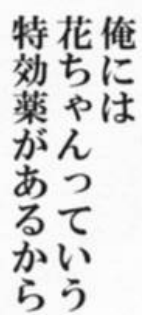 俺には
花ちゃんっていう
特効薬があるから